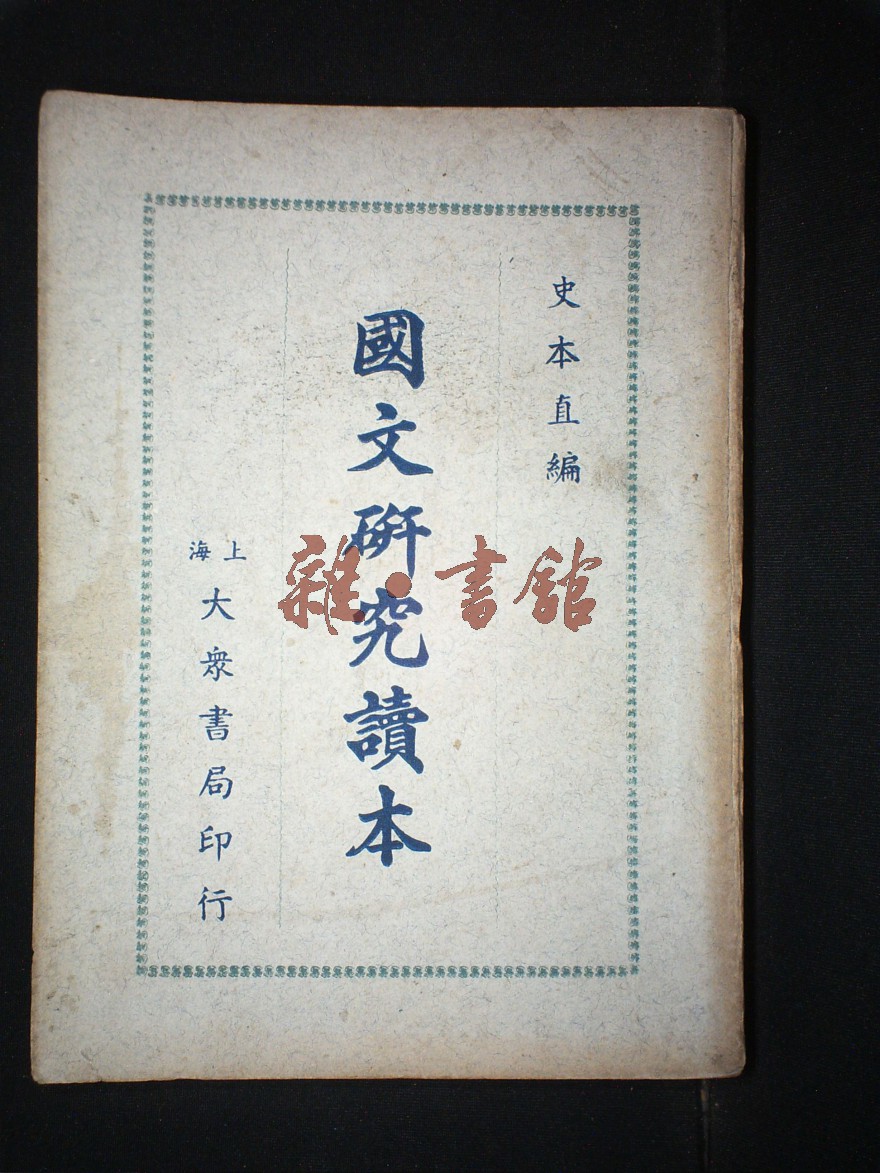 史本直編
國文研究讀本
上海
大衆書局印行
雜·書館